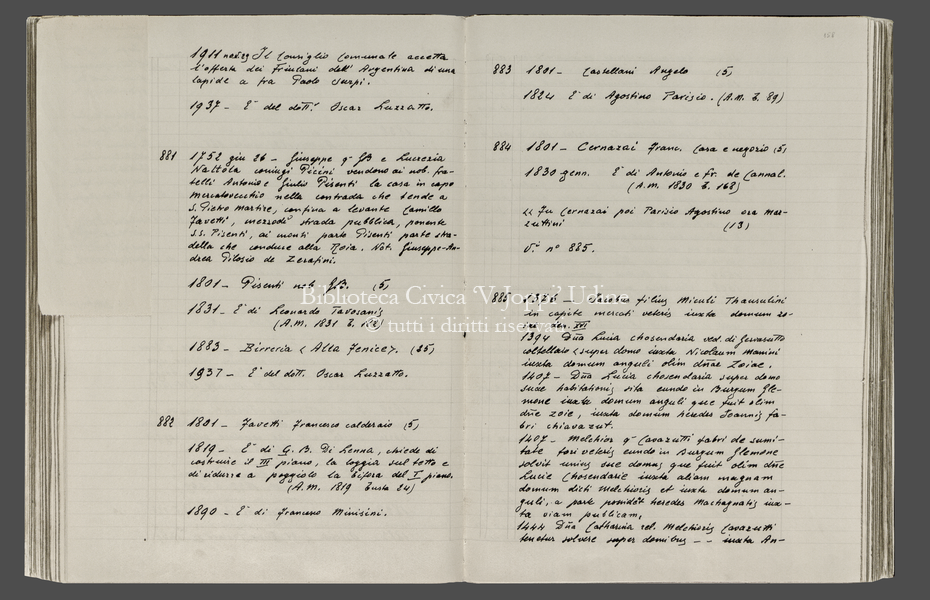 1911 nov. 29 Il Consiglio Comunale accetta
l'offerta dei Friulani dell'Argentina di una
lapide a fra Paolo Sarpi.
1937 - È del dott. Oscar Luzzatto.
881 1752 giu 26 - Giuseppe q. GB e Lucrezia
Nattola coniugi Picini vendono ai nob. fra-
telli Antonio e Giulio Pisenti la casa in capo
mercatovecchio nella contrada che tende a
S. Pietro Martire, confina a levante Camillo
Favetti, mezzodì strada pubblica, ponente
s.s. Pisenti, ai monti parte Pisenti parte stra-
della che conduce alla Roia. Not. Giuseppe-An-
drea Pilosio de Zerafini.
1801 - Pisenti nob. GB. (5)
1831 - È di Leonardo Tavosanis
(A.M. 1831 b.
1883 - Birreria "Alla Fenice". (25)
1937 - È del dott. Oscar Luzzatto.
882 1801 - Favetti Francesco calderaio (5)
1819 - È di G. B. Di Lenna, chiede di
costruire il III piano, la loggia sul tetto e
di ridurre a poggiolo la bifora del I piano.
(A.M. 1819 busta 24)
1890 - È di Francesco Minisini.
158
883 1801 - Castellani Angelo (5)
1824 È di Agostino Parisio. (A.M. b. 89)
884 1801 - Cernazai Franc. Casa e negozio (5)
1830 genn. È di Antonio e fr. de Cannal.
(A.M. 1830 b. 168)
"Fu Cernazai poi Parisio Agostino ora Mar-
zuttini (13)
V. n° 885.
885 filius Miculi Thansulini
in capite mercati veteris iuxta domum
XVI
1394 Dña Lucia chosendaria ved. di Gervasutto
coltellaro super domo iuxta Nicolaum Manini
iuxta domum anguli olim dñae Zoiae.
1407 - Dña Lucia chosendaria super domo
suae habitationis sita eundo in Burgum Gle-
mone iuxta domum anguli que fuit olim
dñe Zoie, iuxta domum heredes Joannis fa-
bri chiavazut.
1407 - Melchior q. Cavazutti fabri de sumi-
tate fori veteris eundo in Burgum Glemone
solvit unius sue domus que fuit olim dñe
Lucie Chosendarie iuxta aliam magnam
domum dicti Melchioris et iuxta domum an-
guli, a parte possidet heredes Machagnatis iux-
ta viam publicam,
1444 Dña Catharina rel. Melchioris Cavazutti
tenetur solvere super domibus -- iuxta An-
Biblioteca Civica 'V. Joppi' Udine
© tutti i diritti riservati